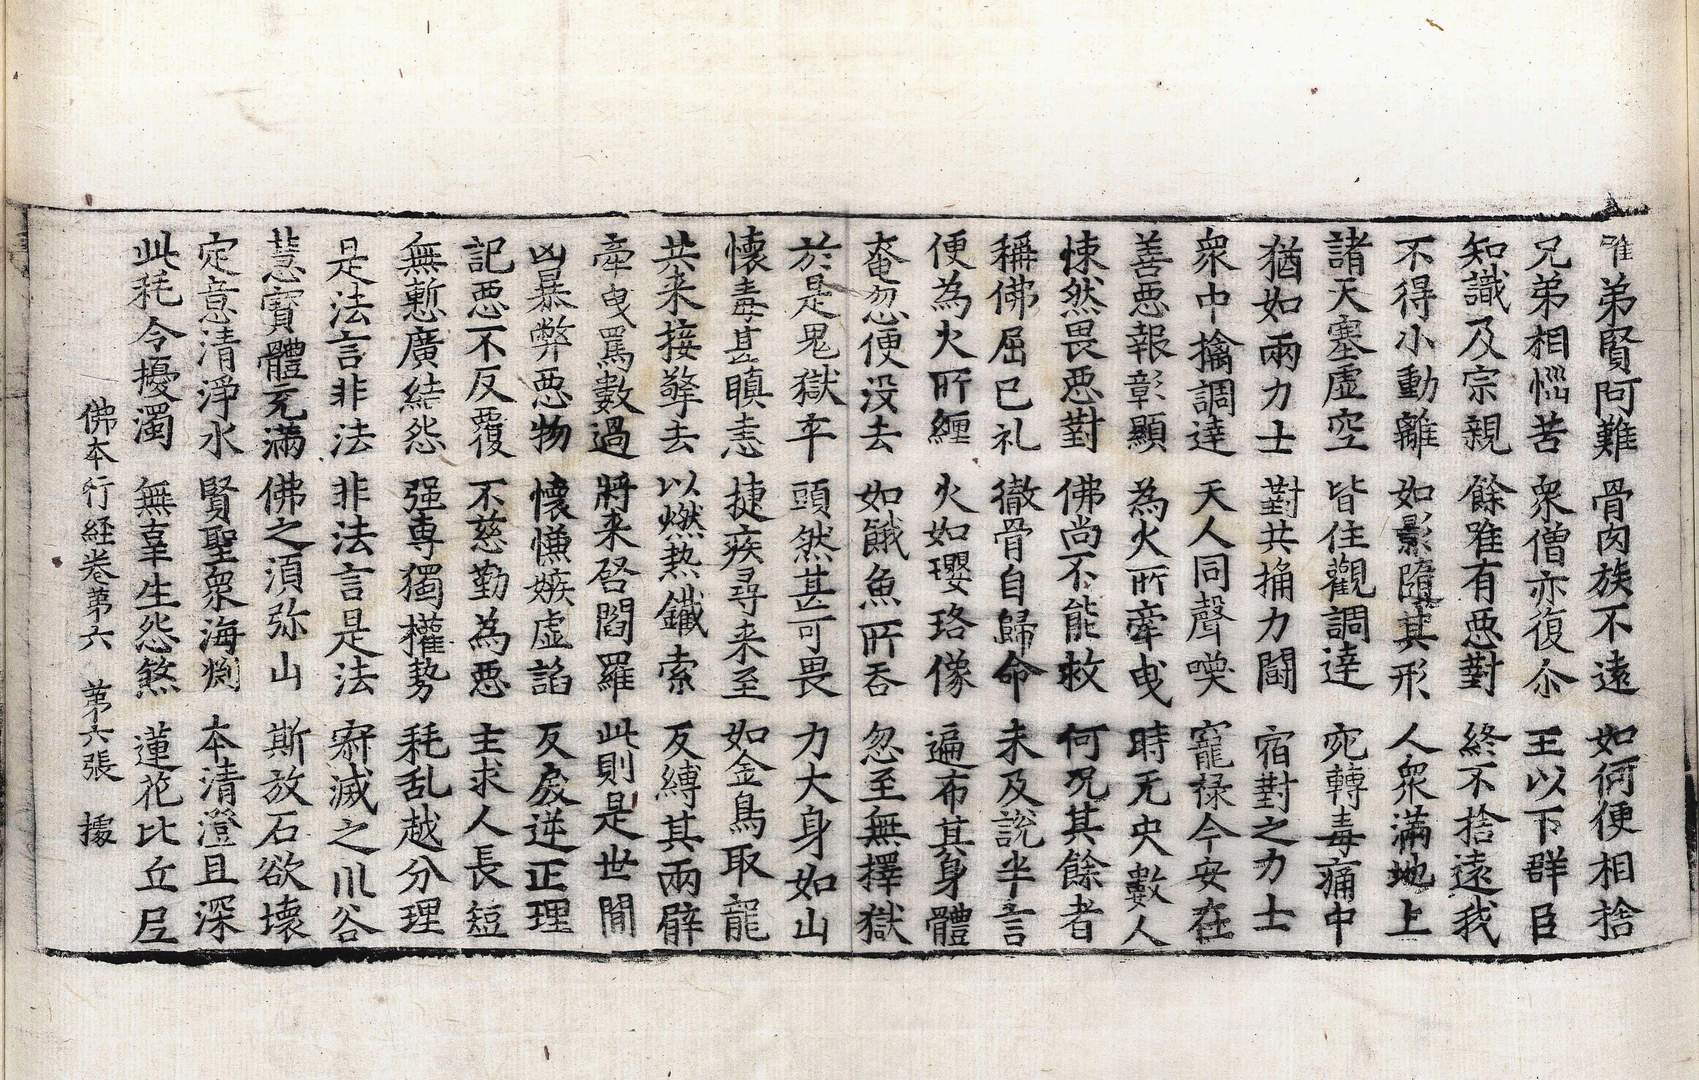 唯弟賢阿難 骨肉族不遠 如何便相捨
兄弟相惱苦 衆僧亦復尒 王以下群臣
知識及宗親 餘唯有惡對 終不捨遠我
不得小動離 如影隨其形 人衆滿地上
諸天塞虛空 皆住觀調達 宛轉毒痛中
猶如兩力士 對共捔力鬪 宿對之力士
衆中擒調達 天人同聲喚 寵祿今安在
善惡報彰顯 為火所牽曳 時无央數人
悚然畏惡對 佛尚不能救 何況其餘者
稱佛屈已礼 徹骨自歸命 未及說半言
便為火所纏 火如瓔珞像 遍布其身體
奄忽便没去 如餓魚所吞 忽至無擇獄
於是鬼獄卒 頭然甚可畏 力大身如山
懷毒甚瞋恚 捷疾尋来至 如金鳥取龍
共来接擎去 以燃熱鐵索 反縛其兩臂
牽曳罵數過 將来啓閻羅 此則是世間
凶暴弊惡物 懷慊嫉虛諂 反戾逆正理
記惡不反覆 不慈勤為惡 主求人長短
無慙廣結怨 强專獨權勢 秏乱越分理
是法言非法 非法言是法 𭒰滅之川谷
慧寶體充滿 佛之湏弥山 斯放石欲壞
定意清淨水 賢聖衆海渕 本清澄且深
此秏令擾濁 無辜生怨煞 蓮花比丘𡰱
佛本行經卷第六 第六張 據